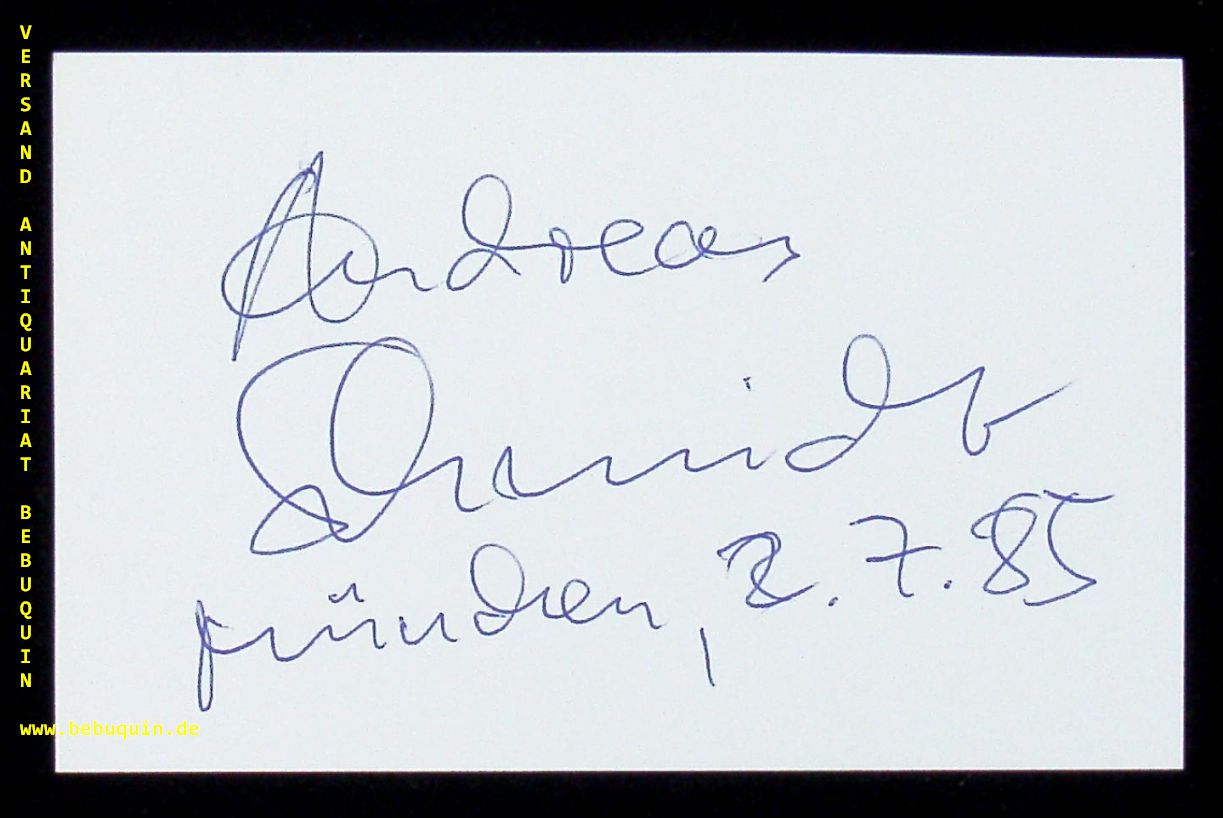 VERSAND ANTIQUARIAT BEBUQUIN
Andreas
Schmidt
München, 2.7.85
www.bebuquin.de